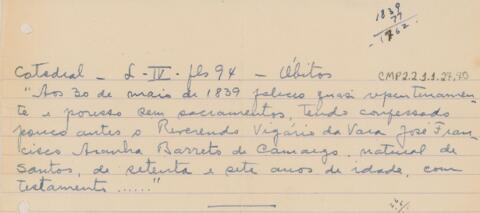 1839
77
1762
Catedral - L-IV- fls 94 - Óbitos
CMP2.2.1.1.27,90
"Aos 30 de maio de 1839 faleceu quasi repentinamen-
te e porisso sem sacramentos, tendo confessado
pouco antes o Reverendo Vigário da Vara José Fran-
cisco Aranha Barreto de Camargo, natural de
Santos, de setenta e sete anos de idade, com
testamento ......"